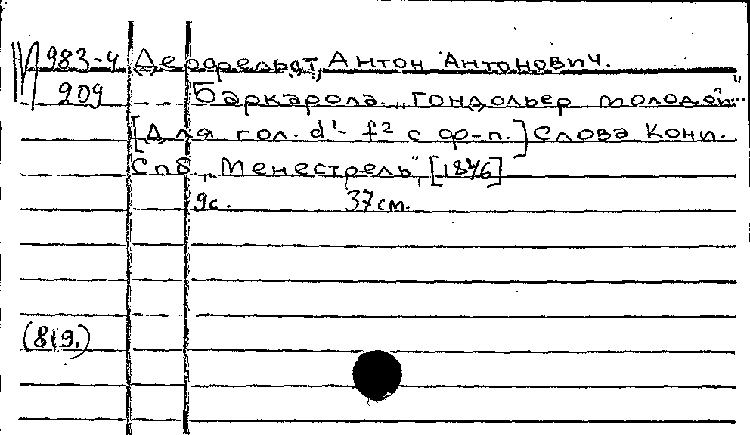 М983-4 Дерфельдт, Антон Антонович.
209 Баркарола „Гондольер молодой"...
[Для гол. d¹- f² с ф-п.] Слова комп.
Спб. „Менестрель", [1876]
9с. 37см.
(819.)